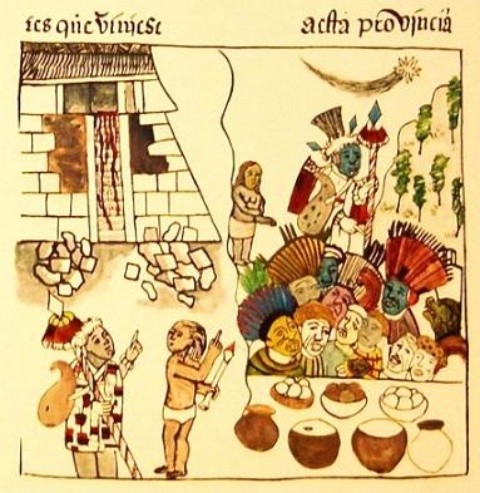 tes que viniese aesta provincia